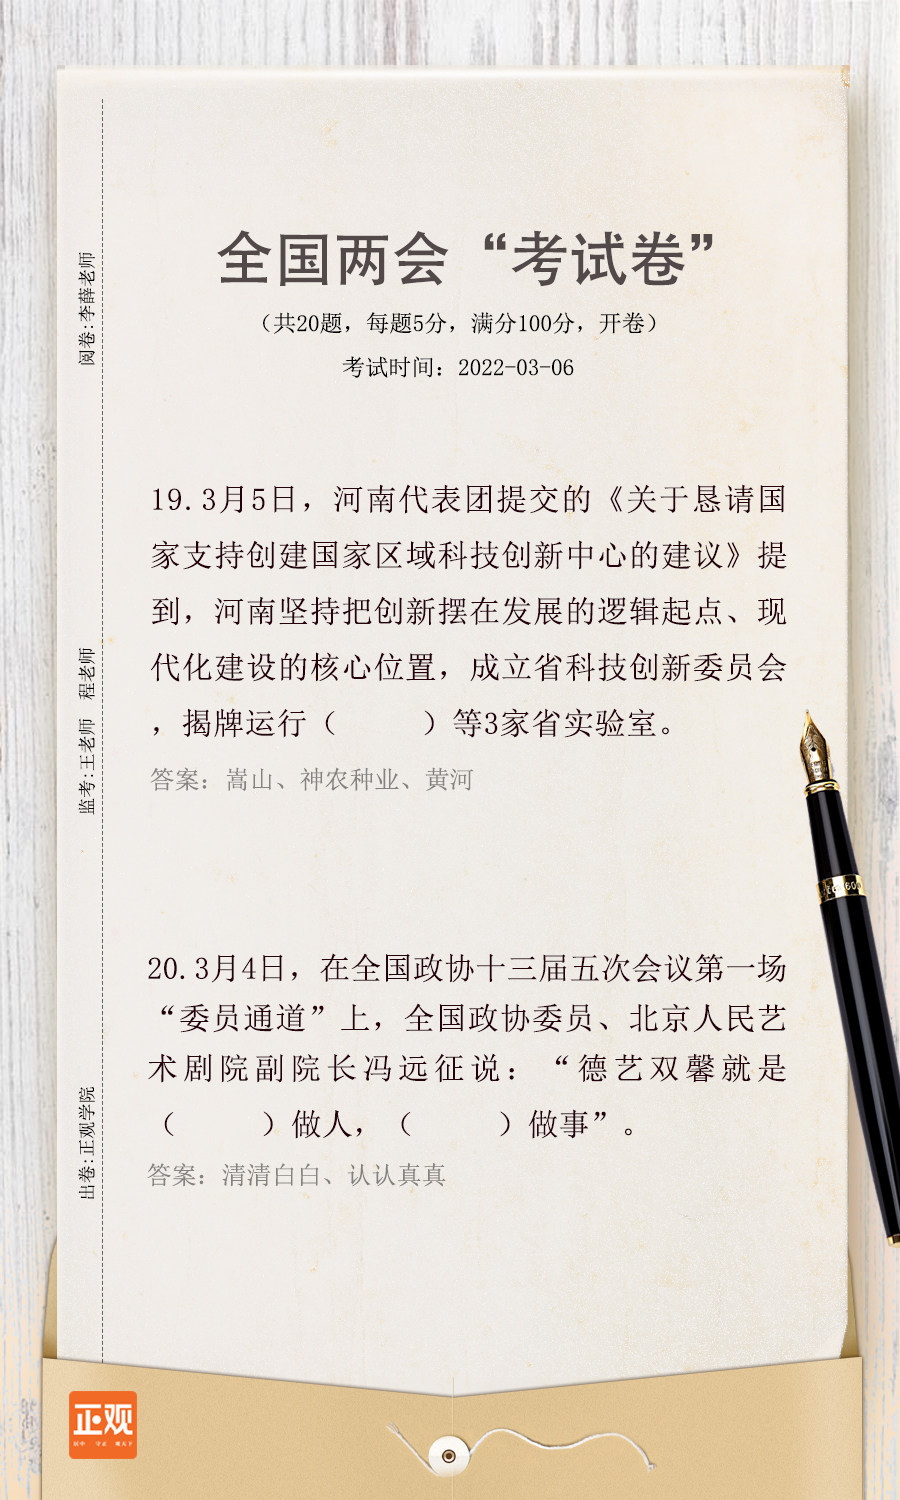 全国两会“考试卷”
（共20题，每题5分，满分100分，开卷）
考试时间：2022-03-06
阅卷:李薛老师
监考:王老师 程老师
出卷:正观学院
19.3月5日，河南代表团提交的《关于恳请国
家支持创建国家区域科技创新中心的建议》提
到，河南坚持把创新摆在发展的逻辑起点、现
代化建设的核心位置，成立省科技创新委员会
，揭牌运行（　　）等3家省实验室。
答案：嵩山、神农种业、黄河
20.3月4日，在全国政协十三届五次会议第一场
“委员通道”上，全国政协委员、北京人民艺
术剧院副院长冯远征说：“德艺双馨就是
（　　）做人，（　　）做事”。
答案：清清白白、认认真真
正观